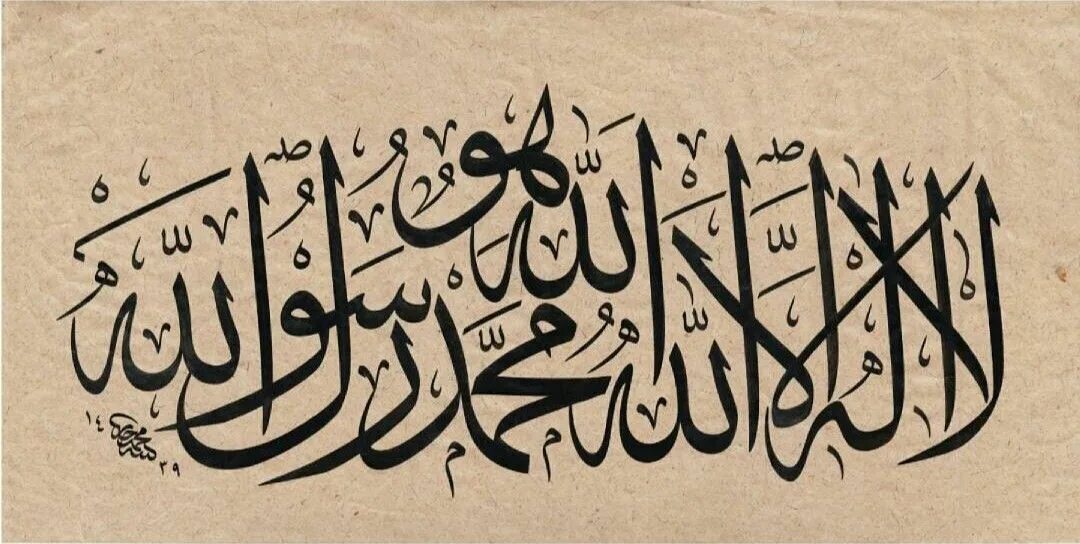 لا إله إلا الله هو الله محمد رسول الله
١٤٣٩